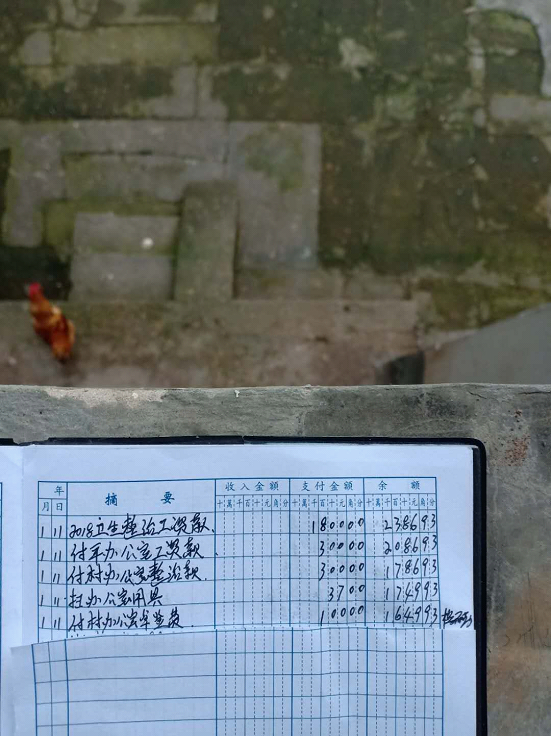 年 摘 要 收入金額 支付金額 余 額
月 日 十 萬 千 百 十 元 角 分 十 萬 千 百 十 元 角 分 十 萬 千 百 十 元 角 分
1 11 2018卫生整治工资款. 180000 238693
1 11 付年办公室工资款. 30000 208693
1 11 付村办公室整治款. 30000 178693
1 11 办公室用具 3700 174993
1 11 付村办公室 10000 164993